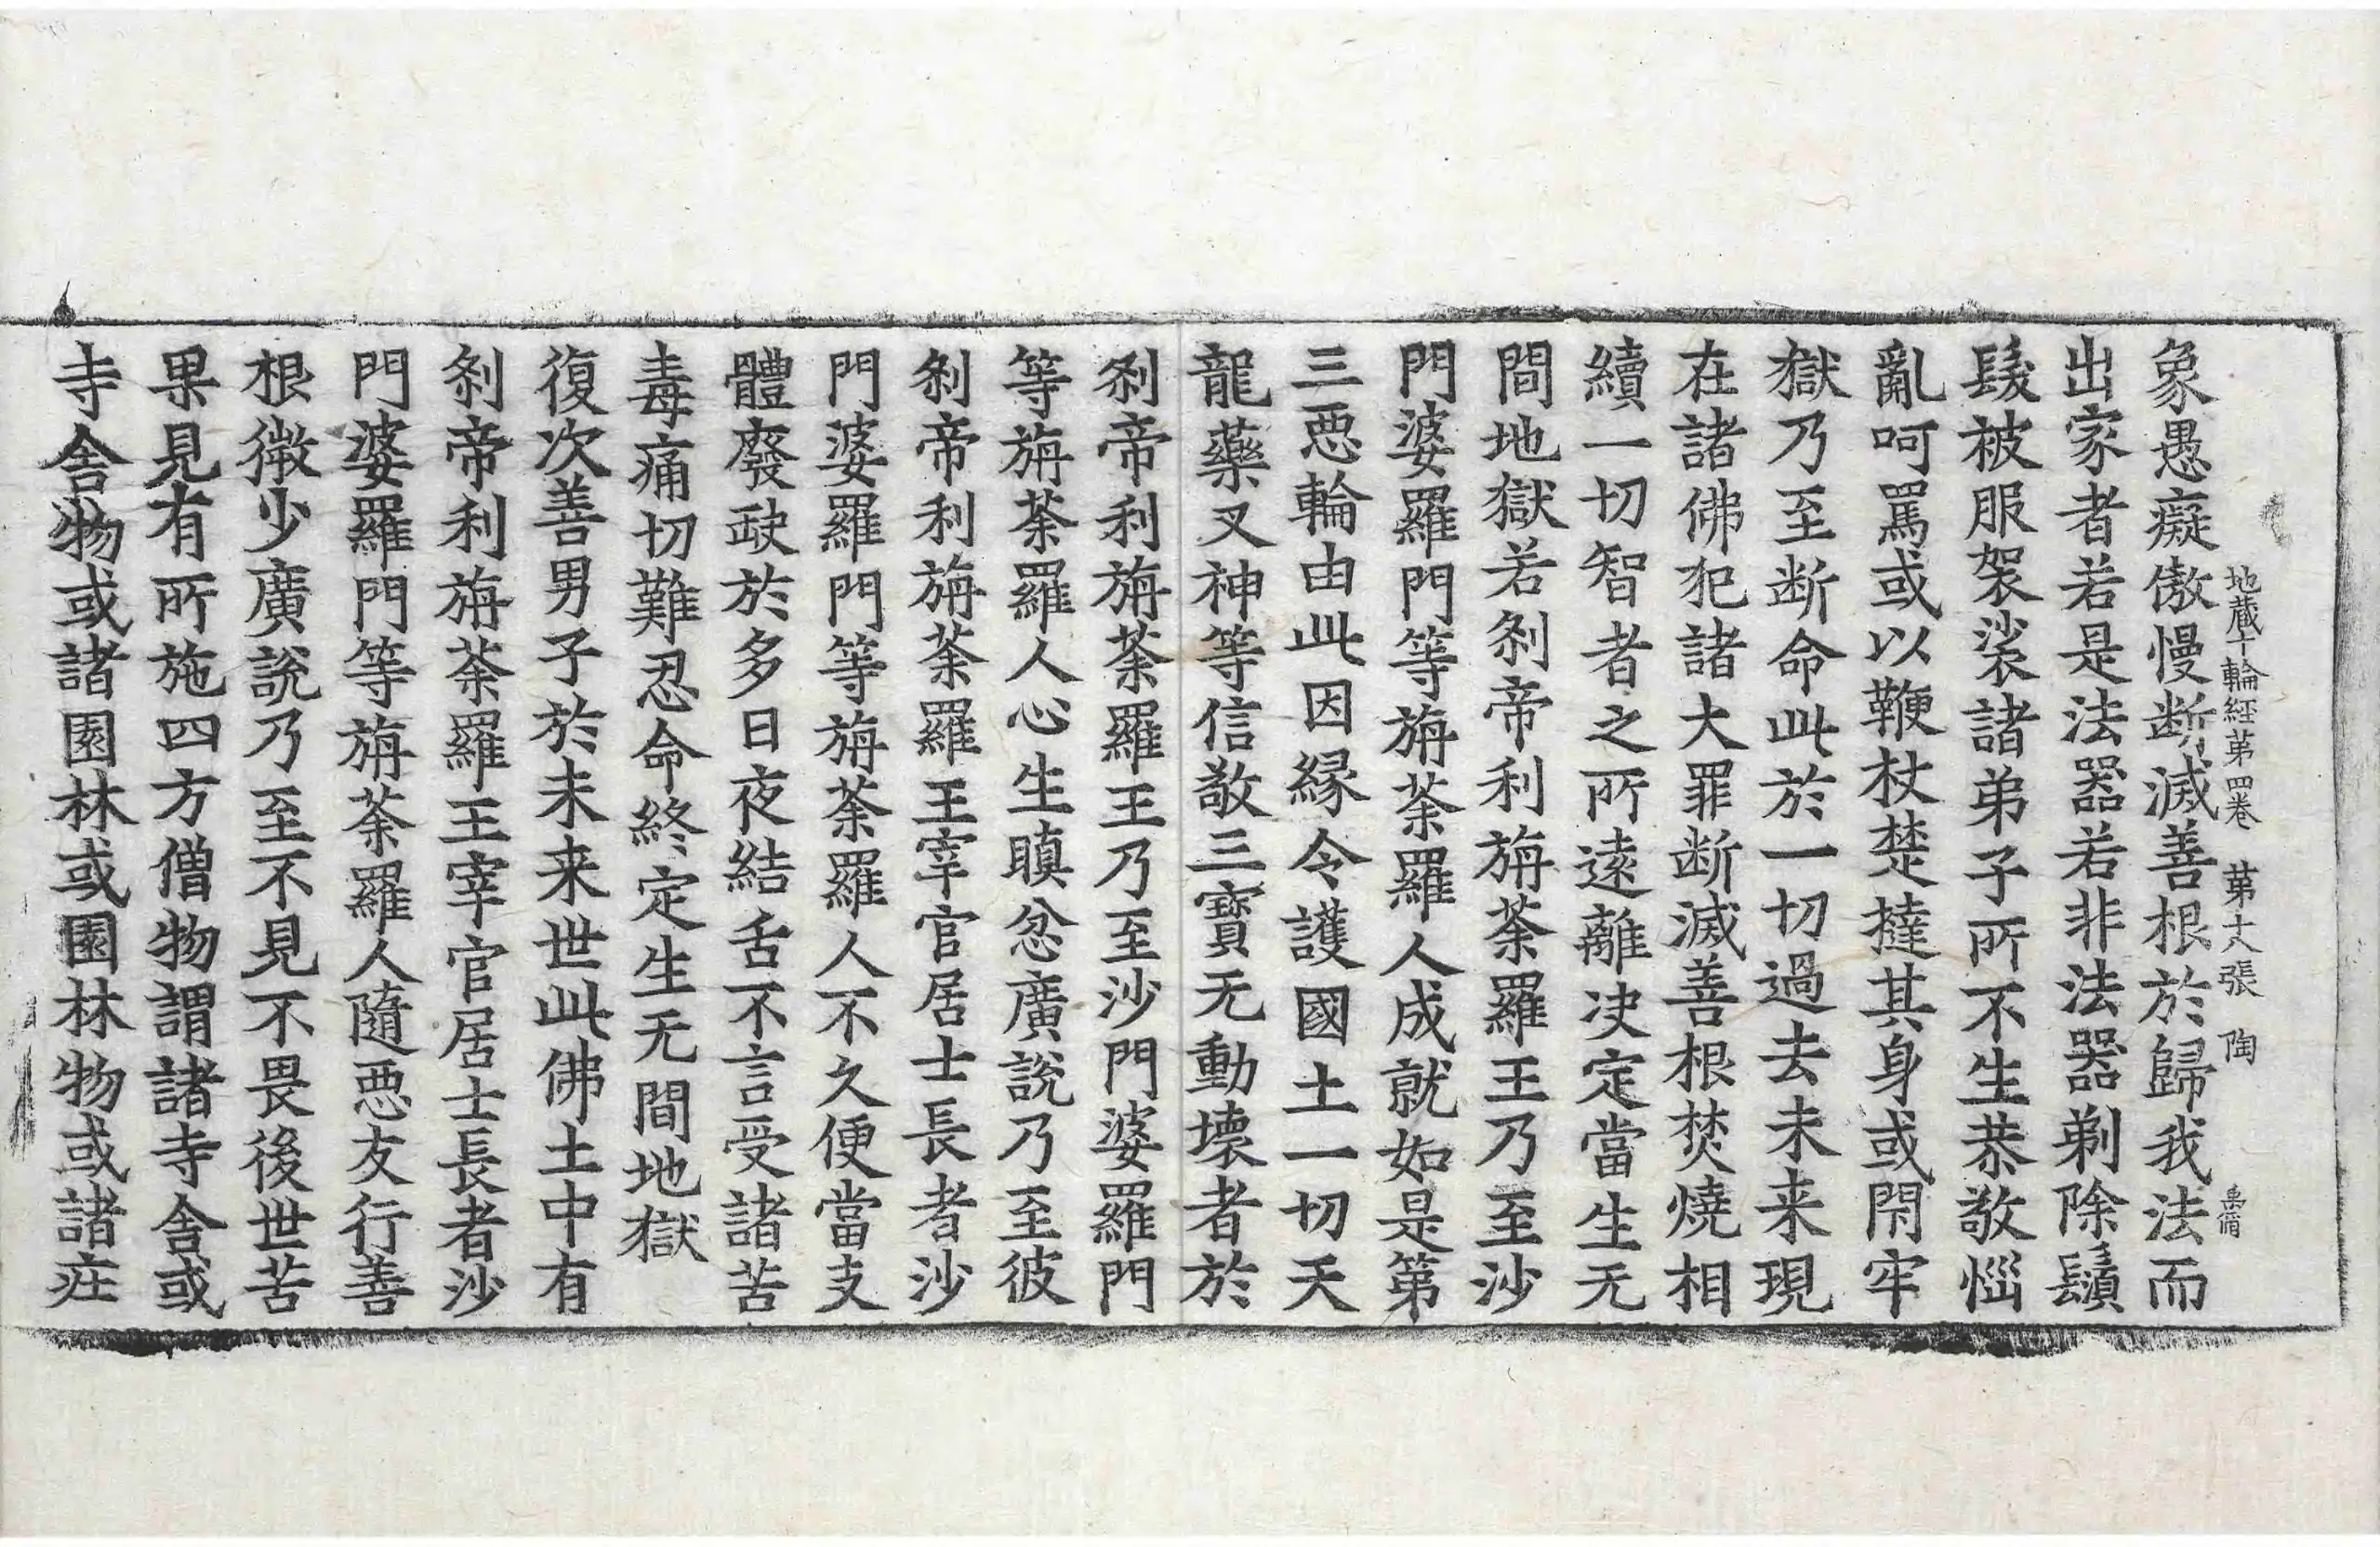 地蔵十輪経第四巻　第十八張　陶
象愚癡傲慢断滅善根於歸我法而
出家者若是法器若非法器剃除鬚
髮被服袈裟諸弟子所不生恭敬惱
亂呵罵或以鞭杖楚撻其身或閇牢
獄乃至断命此於一切過去未来現
在諸佛犯諸大罪断滅善根焚燒相
續一切智者之所遠離决定當生无
間地獄若刹帝利旃荼羅王乃至沙
門婆羅門等旃荼羅人成就如是第
三惡輪由此因緣令護國土一切天
龍藥叉神等信敬三寶无動壞者於
刹帝利旃荼羅王乃至沙門婆羅門
等旃荼羅人心生瞋忿廣說乃至彼
刹帝利旃荼羅王宰官居士長者沙
門婆羅門等旃荼羅人不久便當支
體廢𡙇於多日夜結舌不言受諸苦
毒痛切難忍命終定生无間地獄
復次善男子於未来世此佛土中有
刹帝利旃荼羅王宰官居士長者沙
門婆羅門等旃荼羅人隨惡友行善
根微少廣說乃至不見不畏後世苦
果見有所施四方僧物謂諸寺舍或
寺舍物或諸園林或園林物或諸庄